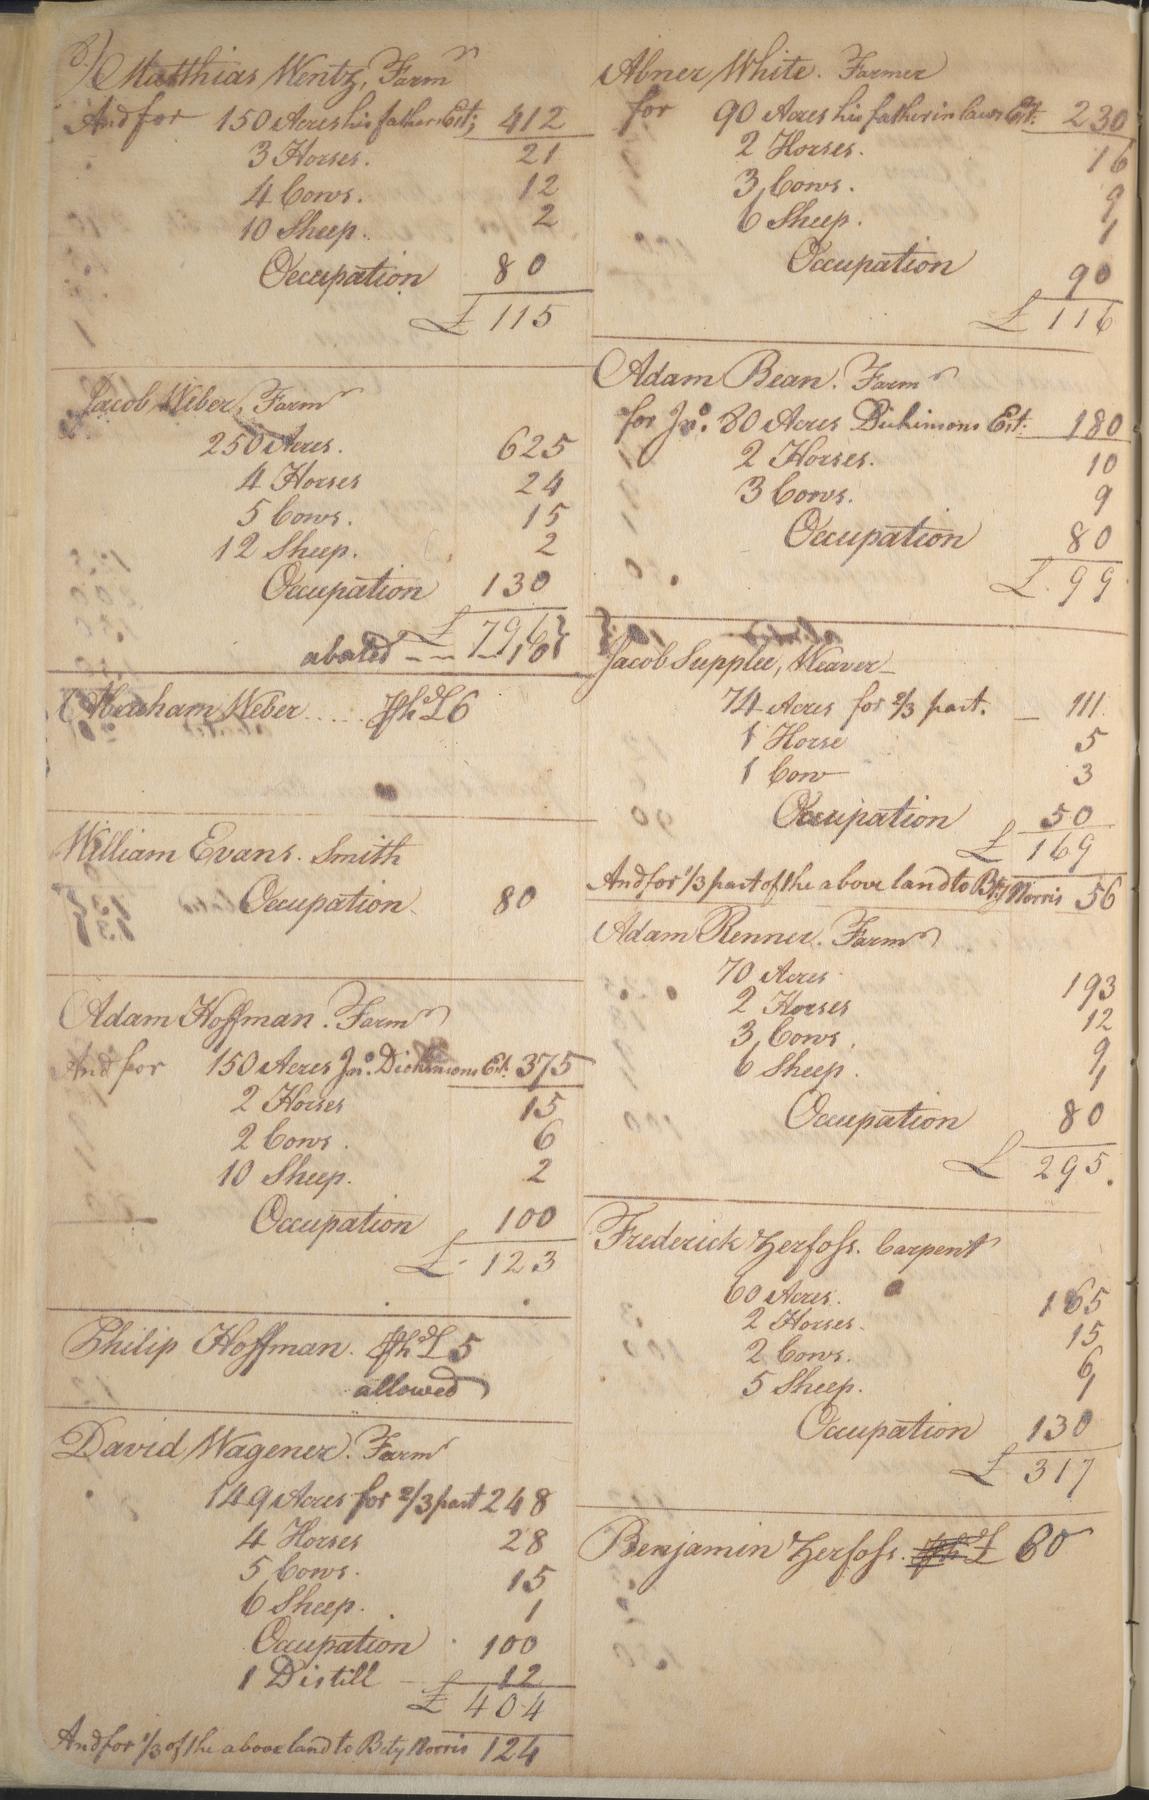 8.) Matthias Wentz, Farmr
And for 150 Acres his fathers Est; 412
3 Horses. 21
4 Cows. 12
10 Sheep. 2
Occupation 80
£ 115
Jacob Weber, Farmr
250 Acres. 625
4 Horses 24
5 Cows. 15
12 Sheep. 2
Occupation 130
£ 796
abated -- -- 10
Abraham Weber ..... £6
William Evans. Smith
Occupation 80
Adam Hoffman. Farmr
And for 150 Acres Jno. Dickinsons Est. 375
2 Horses 15
2 Cows. 6
10 Sheep. 2
Occupation 100
£ 123
Philip Hoffman. £5
allowed
David Wagener. Farmr
149 Acres for 2/3 part 248
4 Horses 28
5 Cows. 15
6 Sheep. 1
Occupation 100
1 Distill 12
£ 404
And for 1/3 of the above land to Bety Norris 124
Abner White. Farmer
for 90 Acres his father in laws Est. 230
2 Horses. 16
3 Cows. 9
6 Sheep. 1
Occupation 90
£ 116
Adam Bean. Farmr
for Jno. 80 Acres Dickinsons Est. 180
2 Horses. 10
3 Cows. 9
Occupation 80
£ 99
Jacob Supplee, Weaver
74 Acres for 2/3 part. 111
1 Horse 5
1 Cow 3
Occupation 50
£ 169
And for 1/3 part of the above land to Bety Norris 56
Adam Renner. Farmr
70 Acres 193
2 Horses 12
3 Cows. 9
6 Sheep. 1
Occupation 80
£ 295.
Frederick Zerfoss. Carpentr
60 Acres. 165
2 Horses. 15
2 Cows. 6
5 Sheep. 1
Occupation 130
£ 317
Benjamin Zerfoss. £ 60